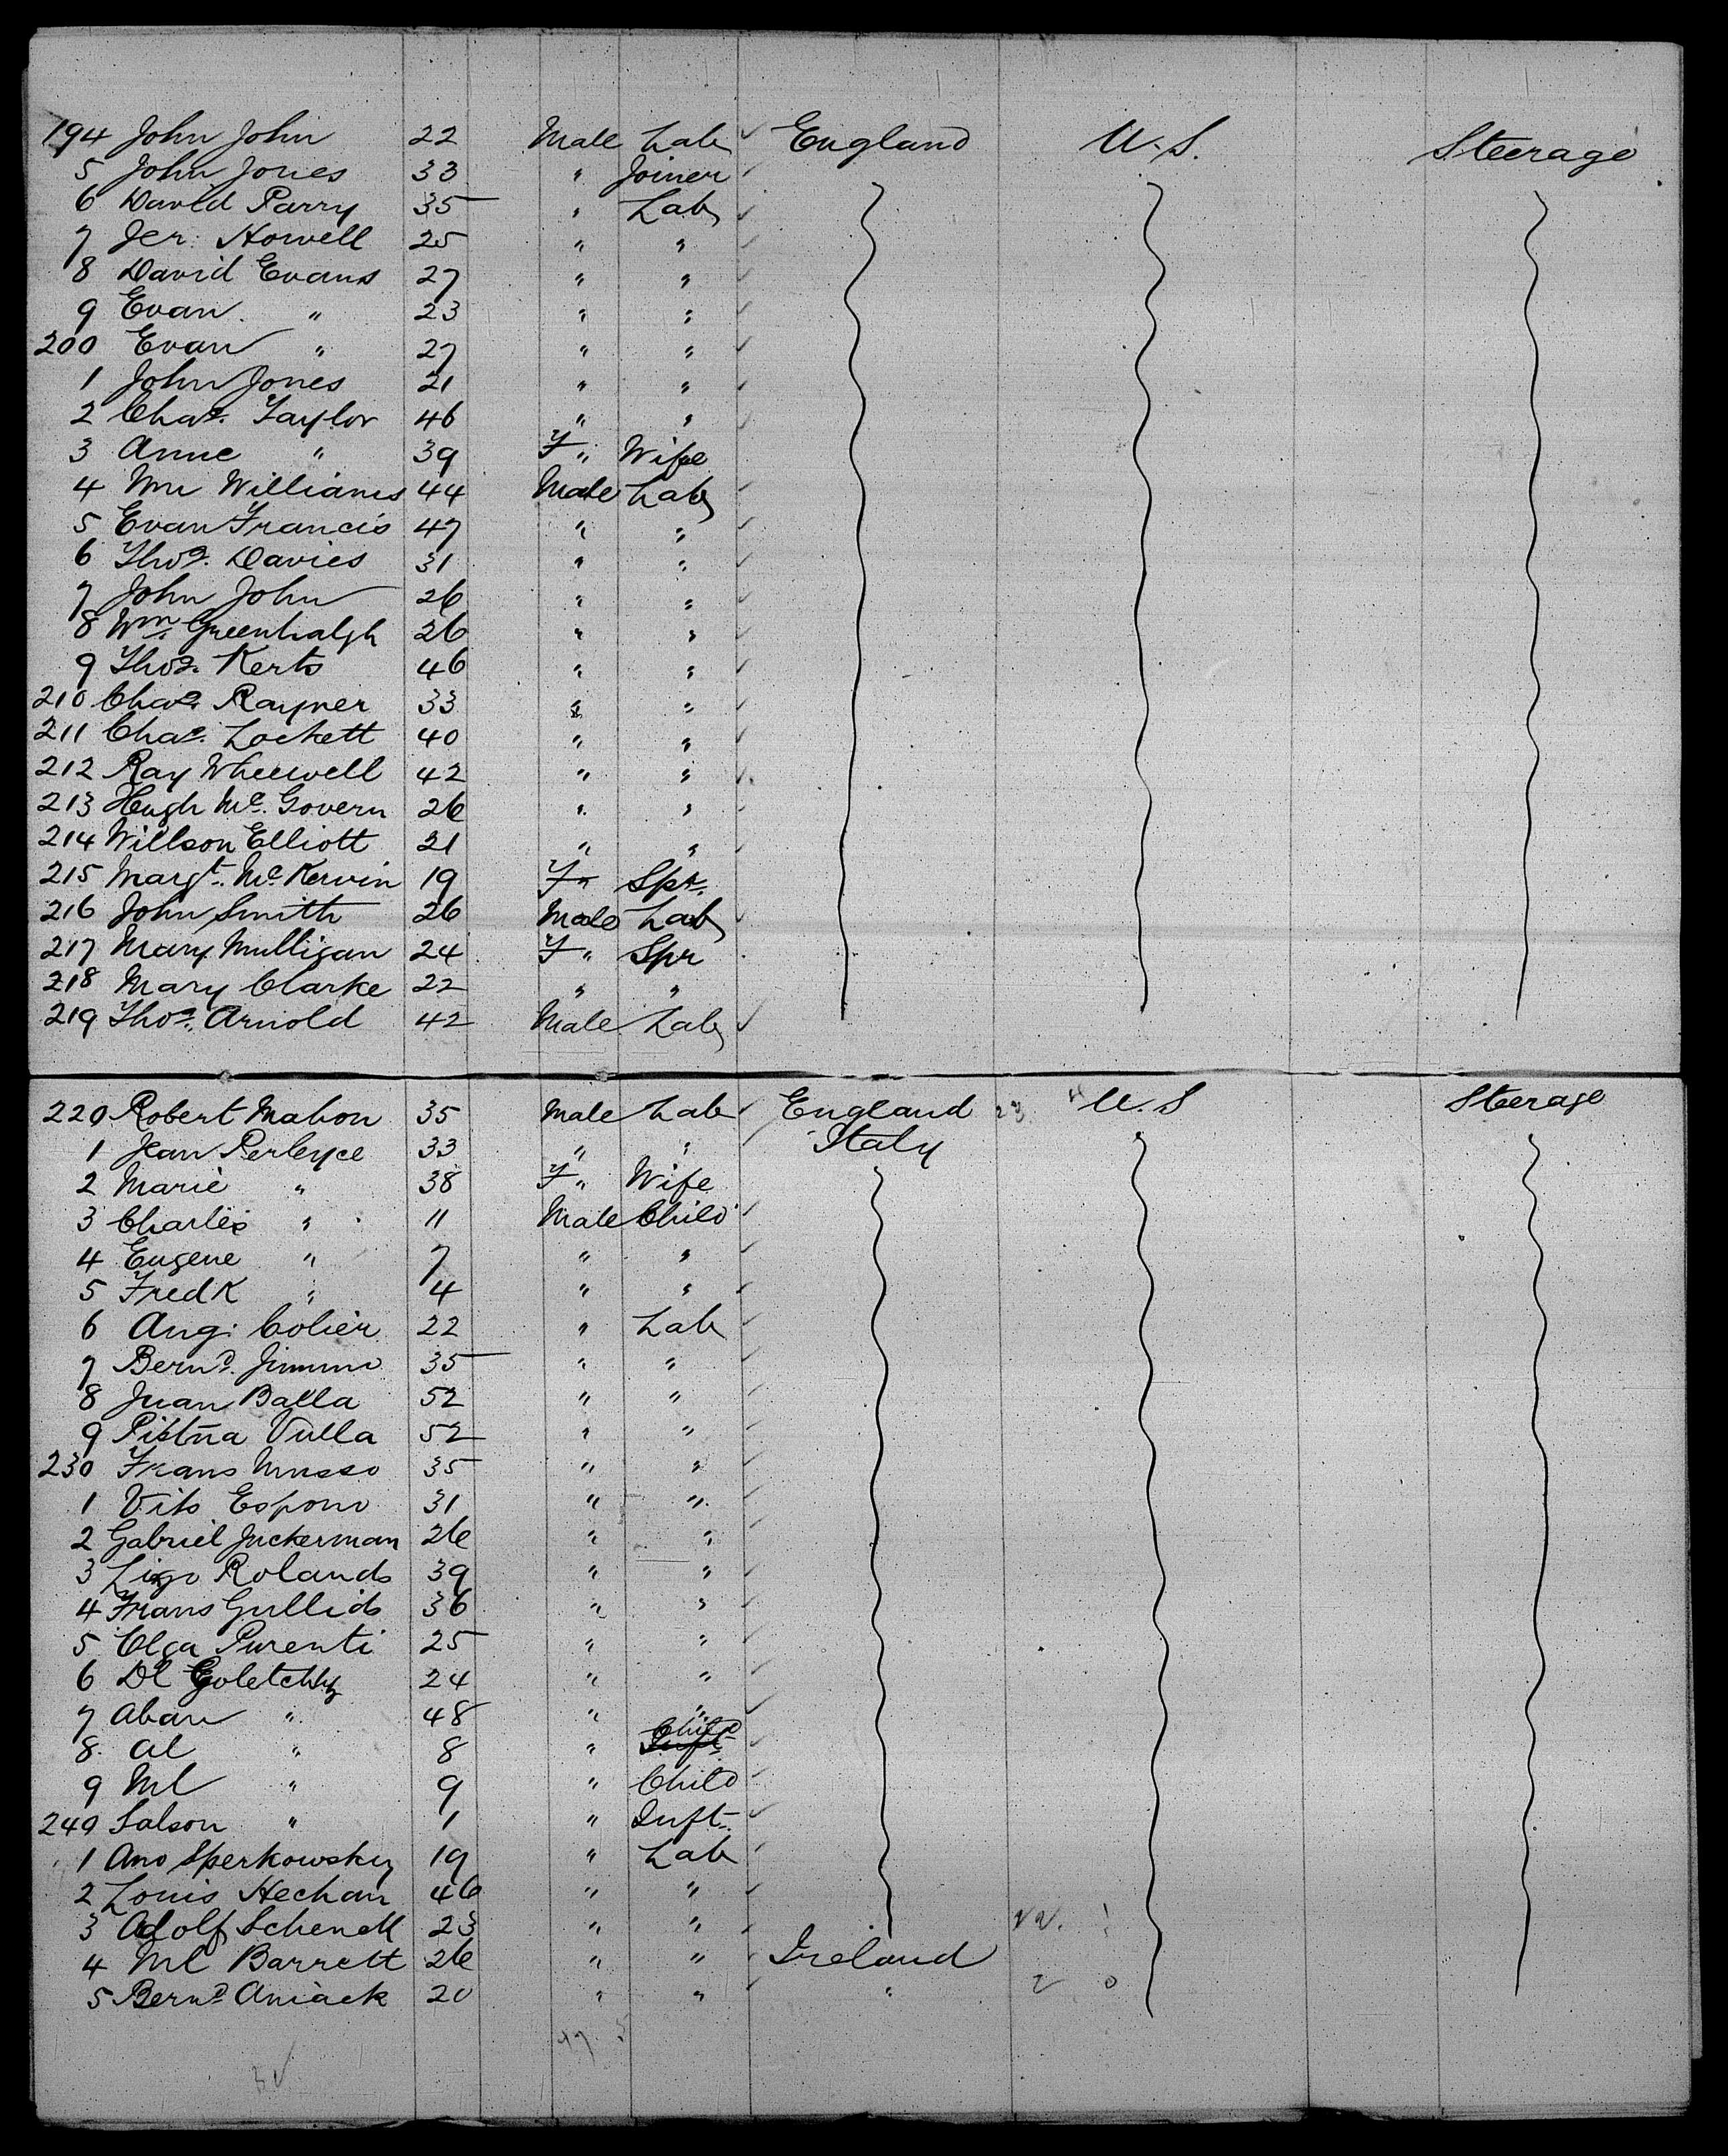 194 John John 22 Male Lab ✓ England U.S. Steerage
5 John Jones 33 " Joiner ✓
6 David Parry 35 " Lab ✓
7 Jer: Howell 25 " " ✓
8 David Evans 27 " " ✓
9 Evan " 23 " " ✓
200 Evan " 27 " " ✓
1 John Jones 21 " " ✓
2 Chas. Taylor 46 " " ✓
3 Anne " 39 F " Wife
4 Wm Williams 44 Male Lab ✓
5 Evan Francis 47 " " ✓
6 Thos. Davies 31 " " ✓
7 John John 26 " " ✓
8 Wm. Greenhalgh 26 " " ✓
9 Thos. Kerts 46 " " ✓
210 Chas. Rayner 33 " " ✓
211 Chas. Lockett 40 " " ✓
212 Ray Wheewell 42 " " ✓
213 Hugh Mc. Govern 26 " " ✓
214 Willson Elliott 21 " " ✓
215 Margt. Mc Kervin 19 F " Spr.
216 John Smith 26 Male Lab ✓
217 Mary Mulligan 24 F " Spr
218 Mary Clarke 22 " "
219 Thos. Arnold 42 Male Lab ✓
220 Robert Mahon 35 Male Lab ✓ England 23 U.S Steerage
1 Jean Perleyce 33 " " Italy
2 Marie " 38 F " Wife
3 Charles " 11 Male Child ✓
4 Eugene " 7 " " ✓
5 Fredk " 4 " " ✓
6 Aug: Colier 22 " Lab ✓
7 Bernd. Jimmo 35 " " ✓
8 Juan Balla 52 " " ✓
9 Vulla 52 " " ✓
230 Frans Musso 35 " " ✓
1 Vito Espono 31 " " ✓
2 Gabriel Juckerman 26 " " ✓
3 Rolands 39 " " ✓
4 Frans Gullids 36 " " ✓
5 Olga Purenti 25 " " ✓
6 Dl Goletchy 24 " " ✓
7 Aban " 48 " " ✓
8 Al " 8 " Child ✓
9 Ml " 9 " Child ✓
240 Salson " 1 " Inft. ✓
1 Ano Sperkowsky 19 " Lab ✓
2 Louis Hechan 46 " " ✓
3 Adolf Schenell 23 " " ✓
4 Ml Barrett 26 " " Ireland
5 Bernd Aniack 20 " " ✓ "